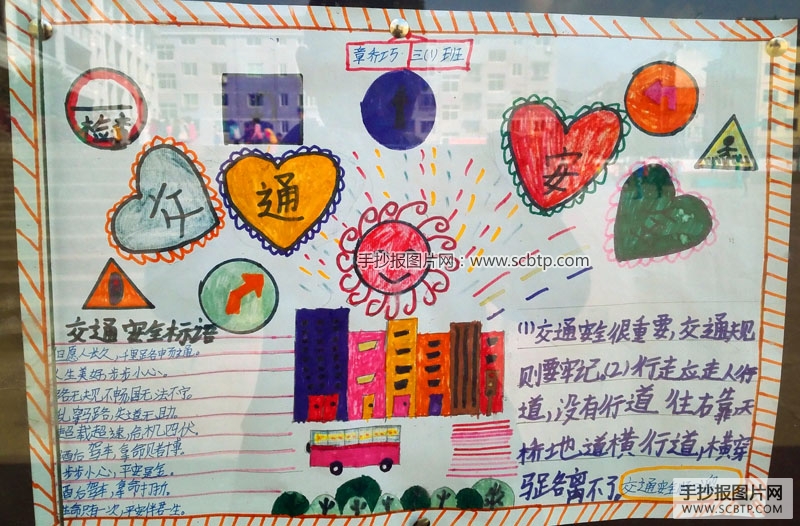 章巧巧 三(1)班
检查
交
通
安
手抄报图片网：www.scbtp.com
交通安全标语
但愿人长久,千里路
人生美好,步步小心。
路无规不畅,国无法不宁。
乱穿马路,失道无助。
超载超速,危机四伏。
酒后驾车,拿命赌
步步小心,平安
酒后驾车,拿命
生命只有一次,平安伴君一生。
(1)交通安全很重要,交通规
则要牢记。(2)行走应走人行
道,没有行道往右靠,天
桥地道横行道,横穿
马路离不了。
交通安全
手抄报图片网
WWW.SCBTP.COM